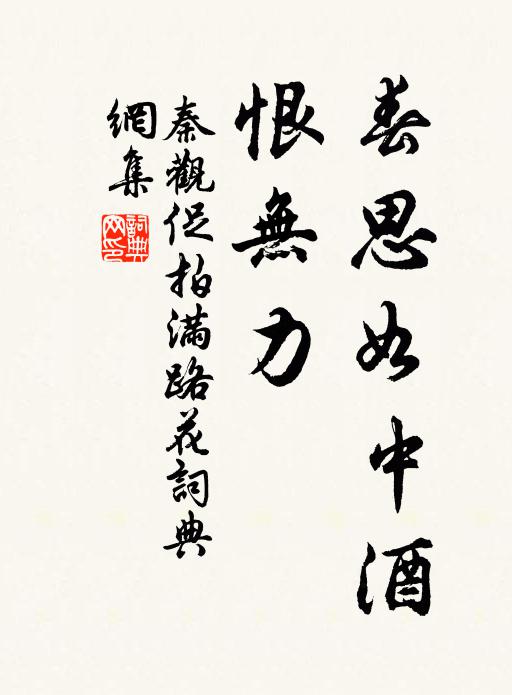 春思如中酒
恨無力
秦觀促拍滿路花詞典
網集
詞典
网印